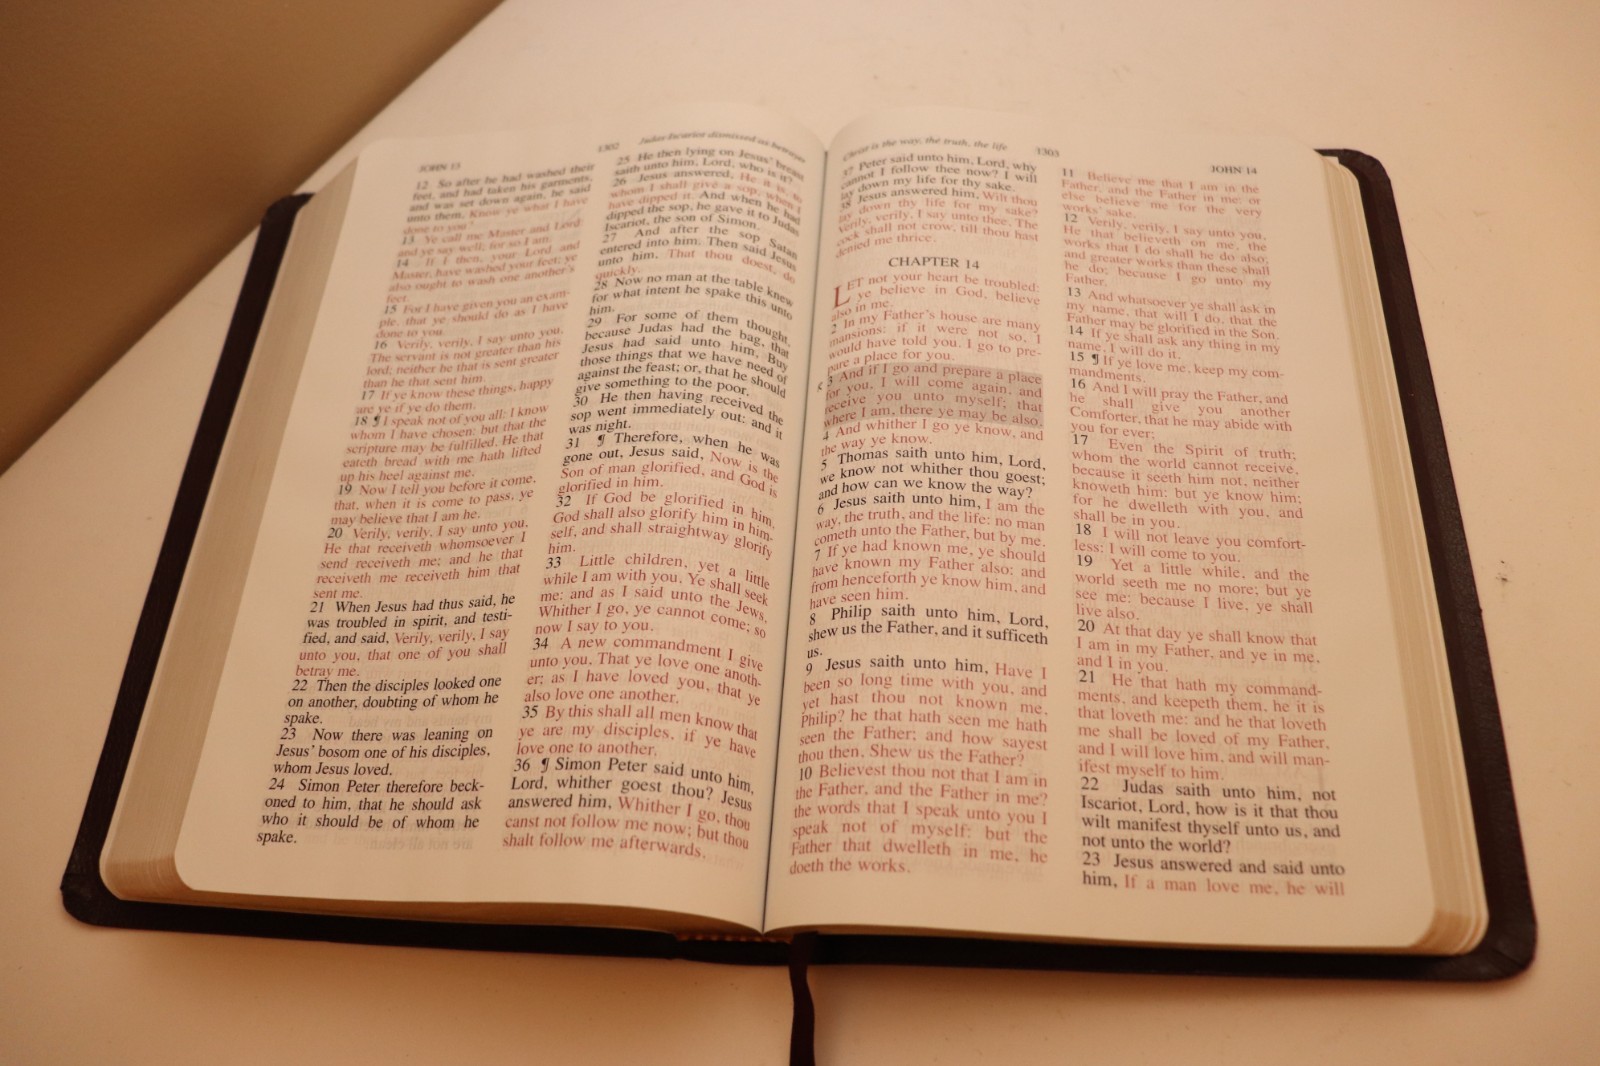 JOHN 13
1302
Judas Iscariot dismissed as betrayer
12 So after he had washed their
feet, and had taken his garments,
and was set down again, he said
unto them, Know ye what I have
done to you?
13 Ye call me Master and Lord:
and ye say well; for so I am.
14 If I then, your Lord and
Master, have washed your feet; ye
also ought to wash one another's
feet.
15 For I have given you an exam-
ple, that ye should do as I have
done to you.
16 Verily, verily, I say unto you,
The servant is not greater than his
lord; neither he that is sent greater
than he that sent him.
17 If ye know these things, happy
are ye if ye do them.
18 ¶ I speak not of you all: I know
whom I have chosen: but that the
scripture may be fulfilled, He that
eateth bread with me hath lifted
up his heel against me.
19 Now I tell you before it come,
that, when it is come to pass, ye
may believe that I am he.
20 Verily, verily, I say unto you,
He that receiveth whomsoever I
send receiveth me; and he that
receiveth me receiveth him that
sent me.
21 When Jesus had thus said, he
was troubled in spirit, and testi-
fied, and said, Verily, verily, I say
unto you, that one of you shall
betray me.
22 Then the disciples looked one
on another, doubting of whom he
spake.
23 Now there was leaning on
Jesus' bosom one of his disciples,
whom Jesus loved.
24 Simon Peter therefore beck-
oned to him, that he should ask
who it should be of whom he
spake.
25 He then lying on Jesus' breast
saith unto him, Lord, who is it?
26 Jesus answered, He it is, to
whom I shall give a sop, when I
have dipped it. And when he had
dipped the sop, he gave it to Judas
Iscariot, the son of Simon.
27 And after the sop Satan
entered into him. Then said Jesus
unto him, That thou doest, do
quickly.
28 Now no man at the table knew
for what intent he spake this unto
him.
29 For some of them thought,
because Judas had the bag, that
Jesus had said unto him, Buy
those things that we have need of
against the feast; or, that he should
give something to the poor.
30 He then having received the
sop went immediately out: and it
was night.
31 ¶ Therefore, when he was
gone out, Jesus said, Now is the
Son of man glorified, and God is
glorified in him.
32 If God be glorified in him,
God shall also glorify him in him-
self, and shall straightway glorify
him.
33 Little children, yet a little
while I am with you. Ye shall seek
me: and as I said unto the Jews,
Whither I go, ye cannot come; so
now I say to you.
34 A new commandment I give
unto you, That ye love one anoth-
er; as I have loved you, that ye
also love one another.
35 By this shall all men know that
ye are my disciples, if ye have
love one to another.
36 ¶ Simon Peter said unto him,
Lord, whither goest thou? Jesus
answered him, Whither I go, thou
canst not follow me now; but thou
shalt follow me afterwards.
Christ is the way, the truth, the life
1303
JOHN 14
37 Peter said unto him, Lord, why
cannot I follow thee now? I will
lay down my life for thy sake.
38 Jesus answered him, Wilt thou
lay down thy life for my sake?
Verily, verily, I say unto thee, The
cock shall not crow, till thou hast
denied me thrice.
CHAPTER 14
LET not your heart be troubled:
ye believe in God, believe
also in me.
2 In my Father's house are many
mansions: if it were not so, I
would have told you. I go to pre-
pare a place for you.
3 And if I go and prepare a place
for you, I will come again, and
receive you unto myself; that
where I am, there ye may be also.
4 And whither I go ye know, and
the way ye know.
5 Thomas saith unto him, Lord,
we know not whither thou goest;
and how can we know the way?
6 Jesus saith unto him, I am the
way, the truth, and the life: no man
cometh unto the Father, but by me.
7 If ye had known me, ye should
have known my Father also: and
from henceforth ye know him, and
have seen him.
8 Philip saith unto him, Lord,
shew us the Father, and it sufficeth
us.
9 Jesus saith unto him, Have I
been so long time with you, and
yet hast thou not known me,
Philip? he that hath seen me hath
seen the Father; and how sayest
thou then, Shew us the Father?
10 Believest thou not that I am in
the Father, and the Father in me?
the words that I speak unto you I
speak not of myself: but the
Father that dwelleth in me, he
doeth the works.
11 Believe me that I am in the
Father, and the Father in me: or
else believe me for the very
works' sake.
12 Verily, verily, I say unto you,
He that believeth on me, the
works that I do shall he do also;
and greater works than these shall
he do; because I go unto my
Father.
13 And whatsoever ye shall ask in
my name, that will I do, that the
Father may be glorified in the Son.
14 If ye shall ask any thing in my
name, I will do it.
15 ¶ If ye love me, keep my com-
mandments.
16 And I will pray the Father, and
he shall give you another
Comforter, that he may abide with
you for ever;
17 Even the Spirit of truth;
whom the world cannot receive,
because it seeth him not, neither
knoweth him: but ye know him;
for he dwelleth with you, and
shall be in you.
18 I will not leave you comfort-
less: I will come to you.
19 Yet a little while, and the
world seeth me no more; but ye
see me: because I live, ye shall
live also.
20 At that day ye shall know that
I am in my Father, and ye in me,
and I in you.
21 He that hath my command-
ments, and keepeth them, he it is
that loveth me: and he that loveth
me shall be loved of my Father,
and I will love him, and will man-
ifest myself to him.
22 Judas saith unto him, not
Iscariot, Lord, how is it that thou
wilt manifest thyself unto us, and
not unto the world?
23 Jesus answered and said unto
him, If a man love me, he will